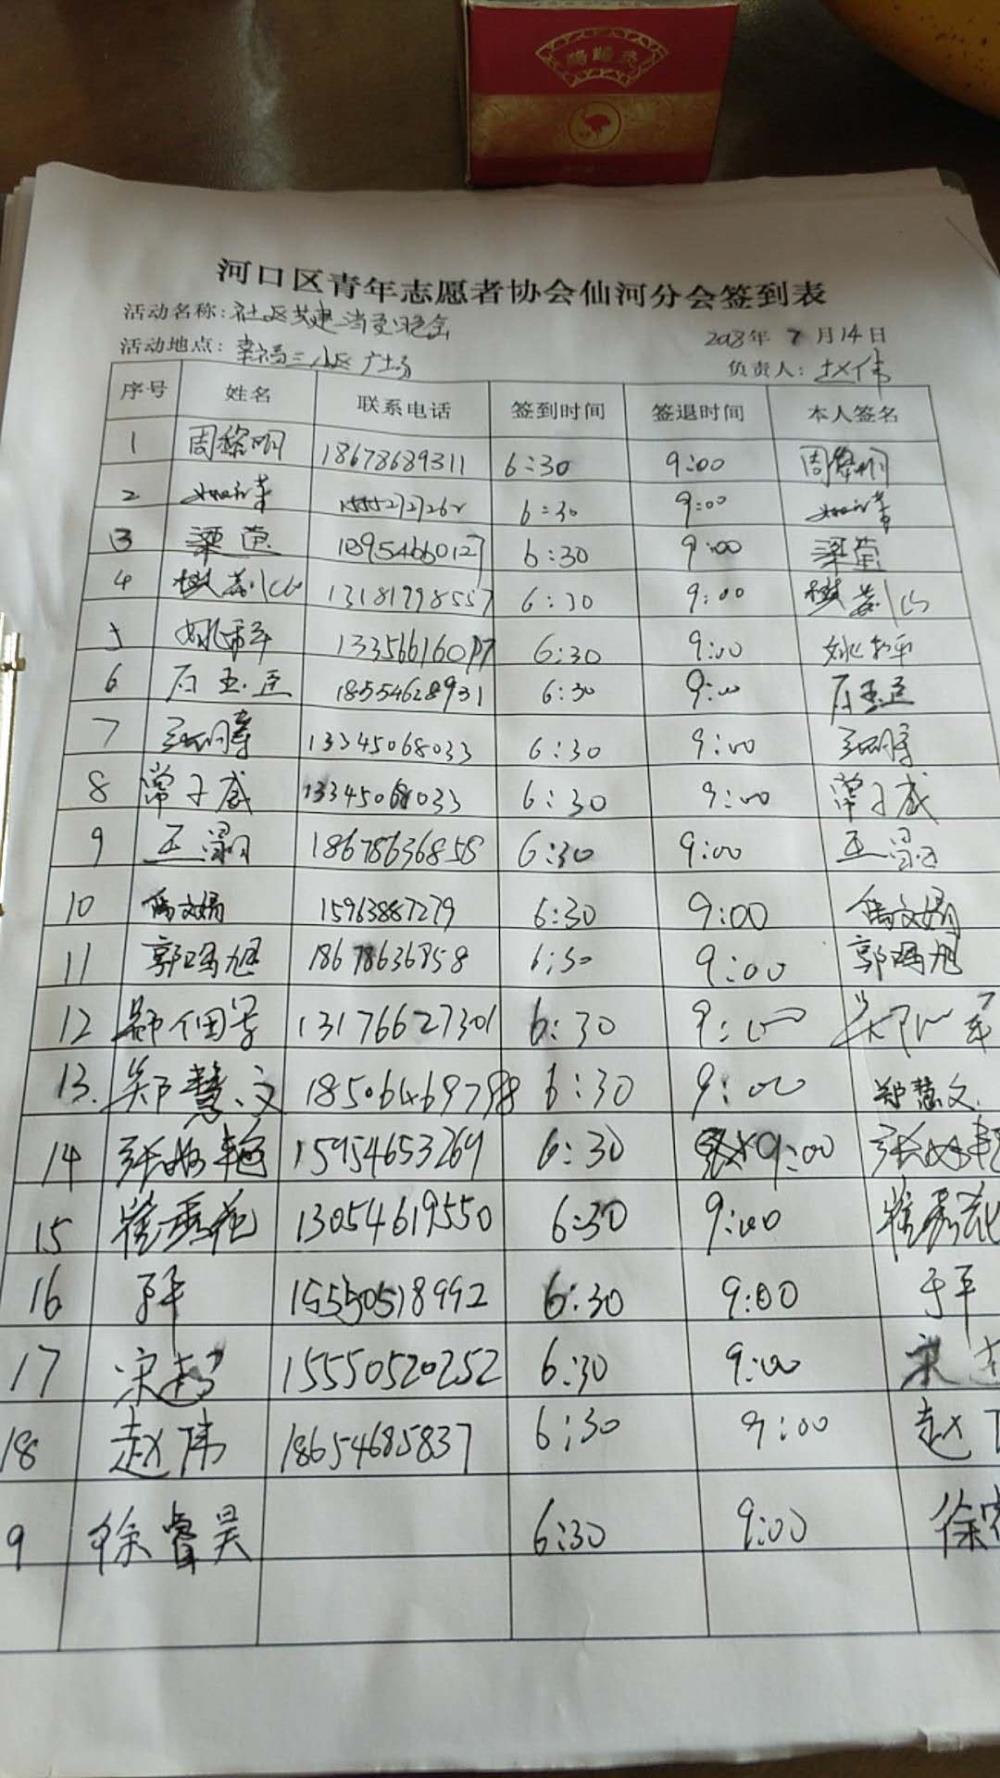 河口区青年志愿者协会仙河分会签到表
活动名称: 社区共建 消夏晚会
2018年 7 月 14 日
活动地点: 幸福三小区广场
负责人: 赵伟
序号 姓名 联系电话 签到时间 签退时间 本人签名
1 周黎明 18678689311 6:30 9:00 周黎明
2 6:30 9:00
3 梁萤 18954660127 6:30 9:00 梁萤
4 13181798557 6:30 9:00
5 6:30 9:00
6 石玉臣 18554628931 6:30 9:00 石玉臣
7 13345068033 6:30 9:00
8 常子威 13345068033 6:30 9:00 常子威
9 18678636858 6:30 9:00
10 15963887279 6:30 9:00
11 郭鸿旭 18678636858 6:30 9:00 郭鸿旭
12 13176627301 6:30 9:00
13. 郑慧文 6:30 9:00 郑慧文
14 15954653269 6:30 9:00
15 崔秀花 13054619550 6:30 9:00 崔秀花
16 于平 15550518992 6:30 9:00 于平
17 宋 15550520252 6:30 9:00 宋
18 赵伟 18654685837 6:30 9:00 赵
9 徐睿昊 6:30 9:00 徐